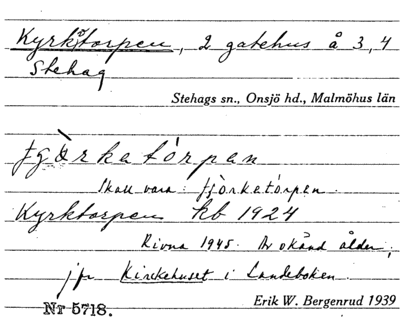 Kyrktorpen, 2 gatehus å 3, 4
Stehag
Stehags sn., Onsjö hd., Malmöhus län
tjòrkatórpan
Skall vara: tjòrketórpen.
Kyrktorpen kb 1924
Rivna 1945. Av okänd ålder,
jfr Kirckehuset i Landeboken.
Erik W. Bergenrud 1939
Nr 5718.